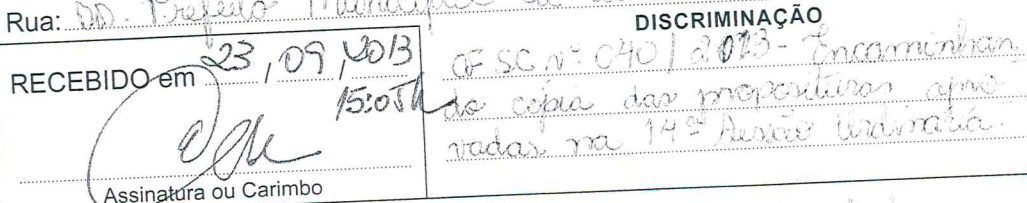 Rua: DD. Prefeito Municipal
DISCRIMINAÇÃO
RECEBIDO em 23, 09, 2013
15:05h
Assinatura ou Carimbo
OF SC nº 040 / 2013 - Encaminhan
do cópia das proposituras apro
vadas na 14ª Sessão Ordinária.